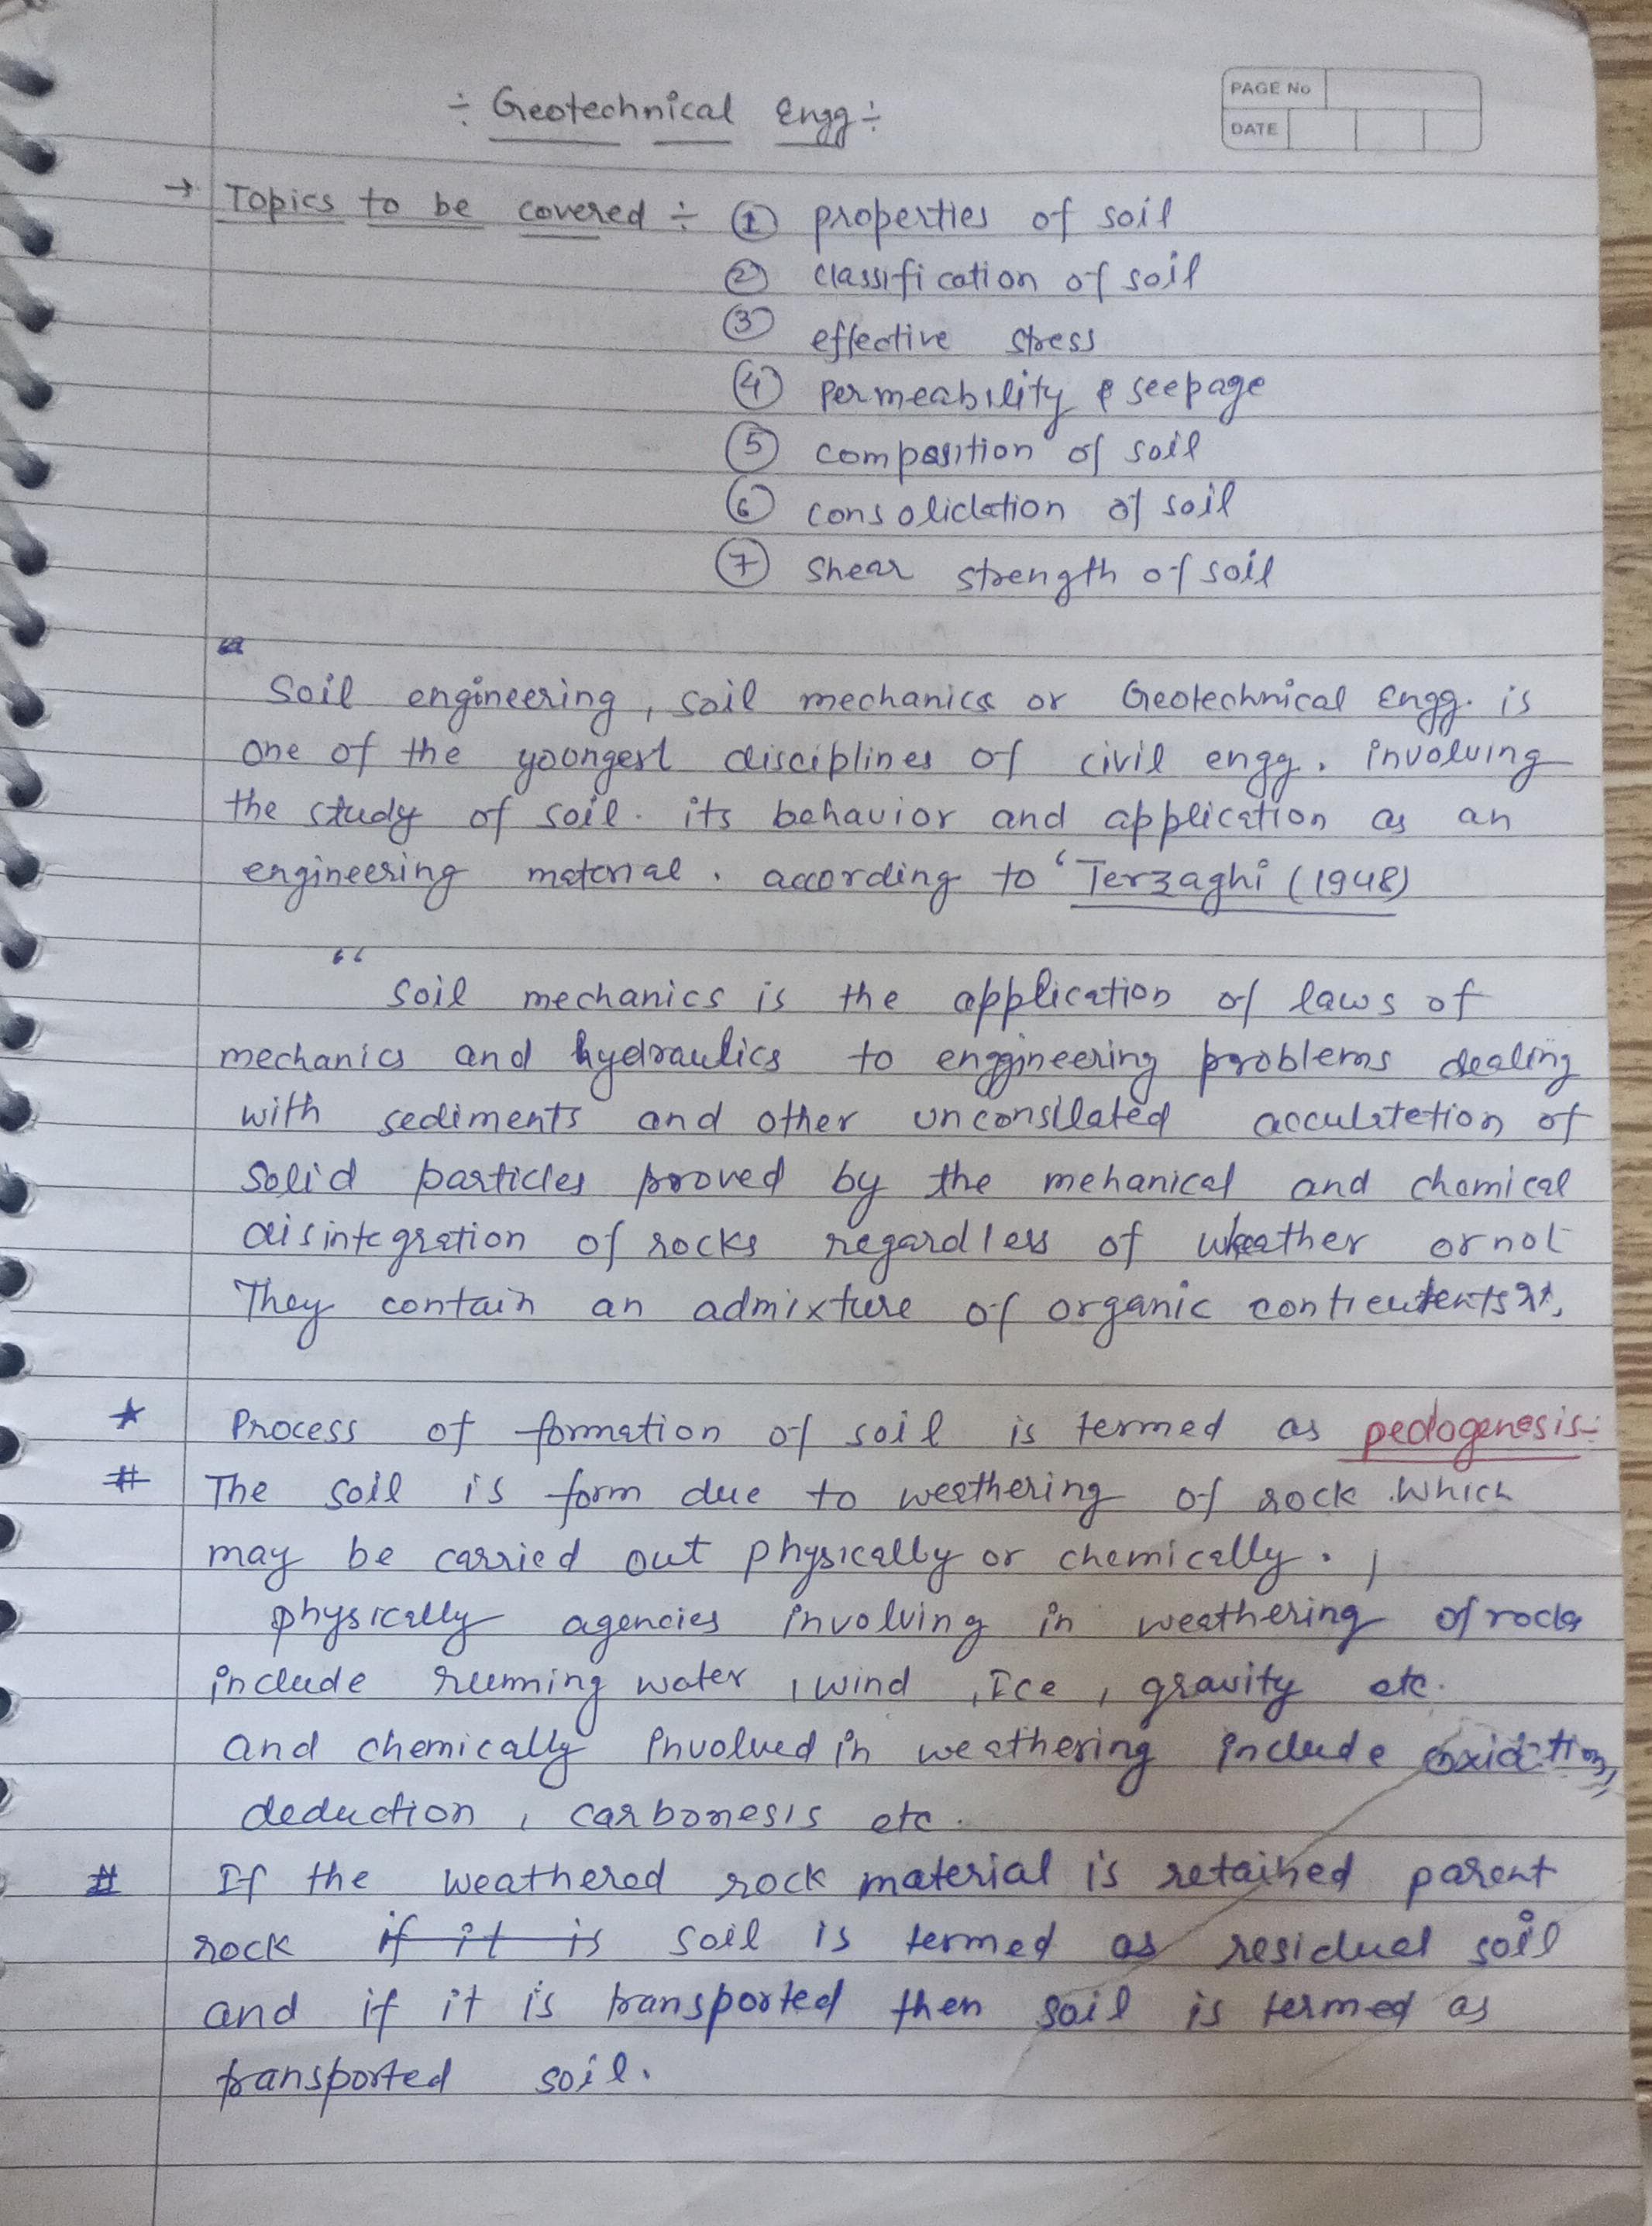 ÷ Geotechnical Engg ÷
PAGE No
DATE
→ Topics to be covered ÷ ① properties of soil
② classification of soil
③ effective stress
④ permeability & seepage
⑤ composition of soil
⑥ consolidation of soil
⑦ shear strength of soil
"
Soil engineering, soil mechanics or Geotechnical Engg. is
one of the yoongest disciplines of civil engg. involving
the study of soil. its behavior and application as an
engineering material. according to ‘Terzaghi (1948)
“
Soil mechanics is the application of laws of
mechanics and hydraulics to enggineering problems dealing
with sediments and other unconsilated acculatetion of
solid particles prooved by the mehanical and chemical
disintegration of rocks regardless of wheather or not
They contain an admixture of organic
* Process of formation of soil is termed as pedogenesis:-
# The soil is form due to weathering of rock. which
may be carried out physically or chemically.
physically agencies involving in weathering of rocks
include running water, wind, Ice, gravity etc.
and chemically involved in weathering include oxidation,
deduction, carbonesis etc.
# If the weathered rock material is retained parent
rock if it is soil is termed as residual soil
and if it is transported then soil is termed as
transported soil.